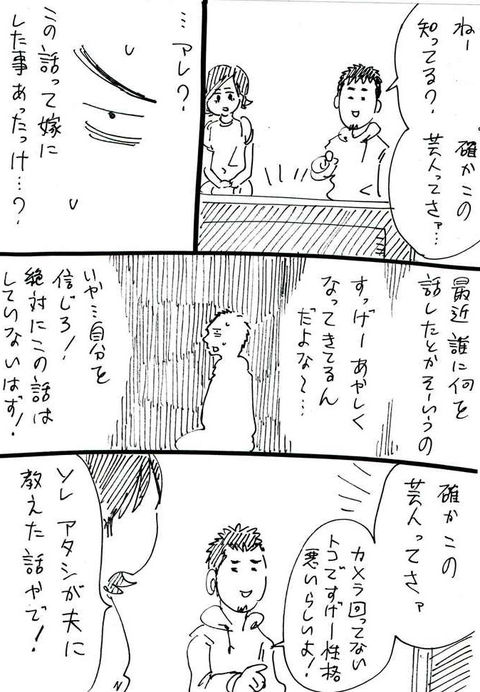 ねー
知ってる？
確かこの
芸人ってさァ…
…アレ？
この話って嫁に
した事あったっけ…？
最近誰に何を
話したとかそーいうの
すっげーあやしく
なってきてるん
だよな〜…
いや…自分を
信じろ！
絶対にこの話は
していないはず！
確かこの
芸人ってさァ
カメラ回ってない
トコですげー性格
悪いらしいよ！
ソレアタシが夫に
教えた話やで！